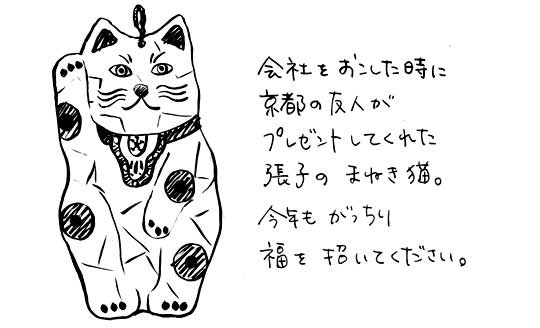 会社をおこした時に
京都の友人が
プレゼントしてくれた
張子の まねき猫。
今年も がっちり
福を 招いてください。